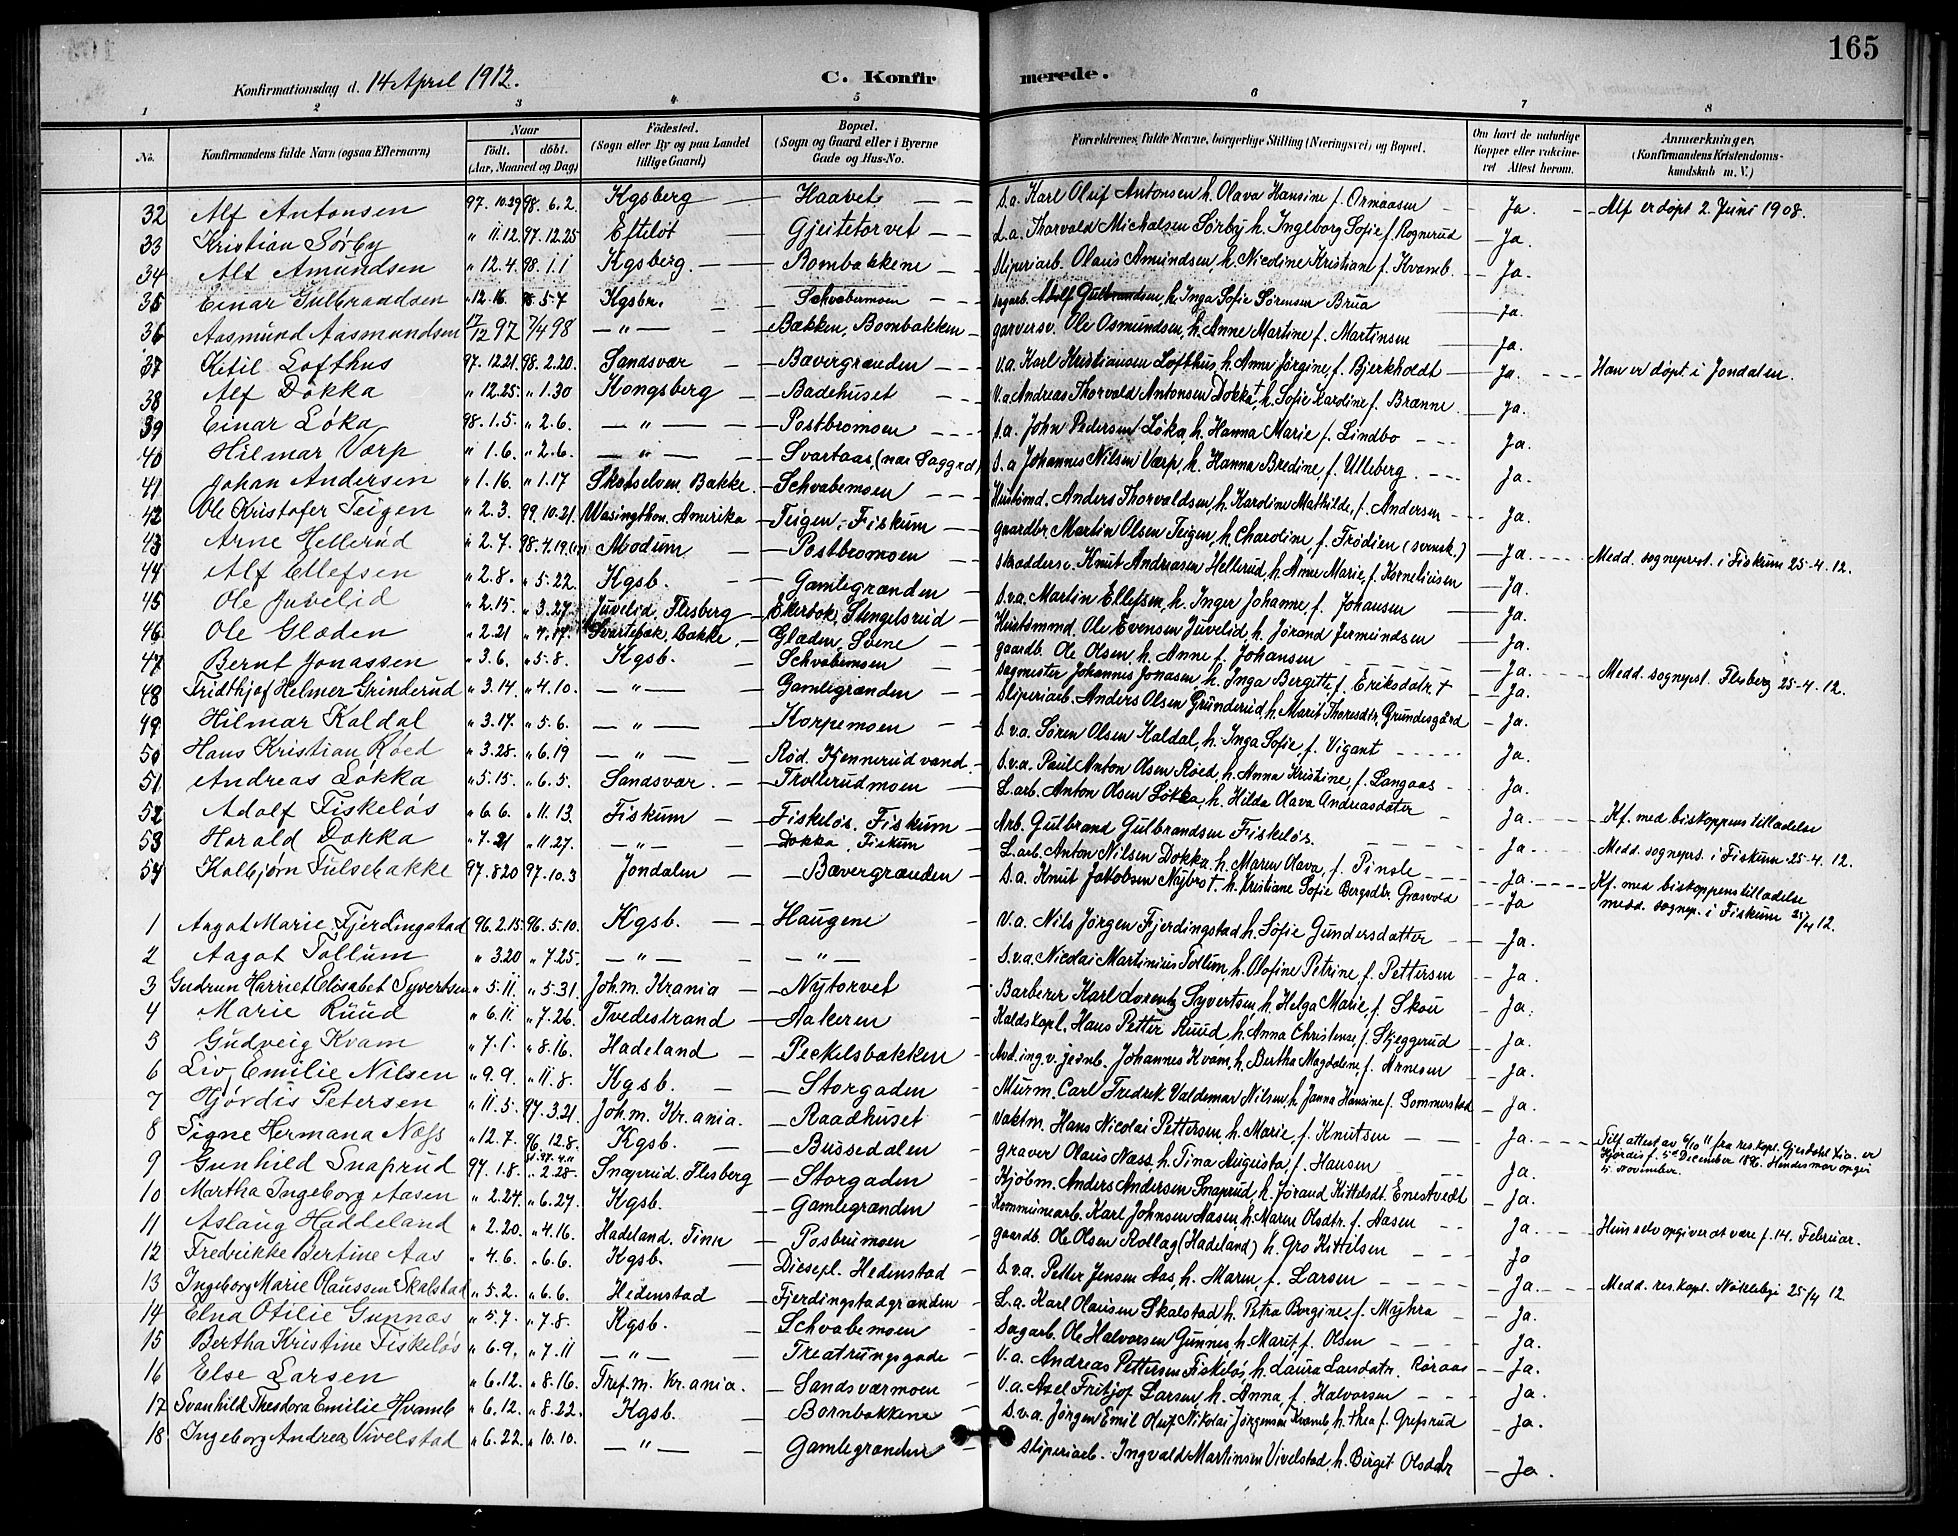 165
Konfirmationsdag d. 14 April 1912. C. Konfirmerede.
1 2 3 4 5 6 7 8
No. Konfirmandens fulde Navn (ogsaa Efternavn) Naar født. døbt. (Aar, Maaned og Dag) Fødested. (Sogn eller By og paa Landet tillige Gaard) Bopæl. (Sogn og Gaard eller i Byerne Gade og Hus-No. Forældrenes fulde Navne, borgerlige Stilling (Næringsvei) og Bopæl. Om havt de naturlige Kopper eller vakcineret Attest herom. Anmerkninger. (Konfirmandens Kristendomskundskab m. V.)
32 Alf Antonsen 97.10.29 98.6.2. Kgsberg Haavet S.a. Karl Oluf Antonsen h. Olava Hansine f. Ormaasen Ja. Alf er døpt 2. Juni 1908.
33 Kristian Sørby " 11.12. 97.12.25 Efteløt Gjeitetorvet d.a. Thorvald Michalsen Sørby h. Ingeborg Sofie f. Rognerud Ja.
34 Alf Amundsen " 12.4. 98.1.1 Kgsberg. Bombakkene Sliperiarb. Olaus Amundsen, h. Nicoline Kristiane f. Kvamb. Ja.
35 Einar Gulbrandsen " 12.16. 98.5.7 Kgsbr. Schvabemoen Sagarb. Adolf Gulbrandsen, h. Inga Sofie Sørensen Brua Ja.
36 Aasmund Aasmundsen 17/12 97 7/4 98 — " — Bækken, Bombakken garversv. Ole Osmundsen, h. Anne Martine f. Martinsen Ja.
37 Ketil Lofthus 97.12.21 98.2.20. Sandsvær Bævergrænden V.a. Karl Kristiansen Lofthus, h. Anne Jørgine, f. Bjerkholdt Ja. Han er døpt i Jondalen.
38 Alf Dokka " 12.25. " 1.30 Kongsberg Badehuset V.a. Andreas Thorvald Antonsen Dokka †, h. Sofie Karoline f. Brænne Ja.
39 Einar Løka 98.1.5. " 2.6. — " — Postbromoen S.a. John Pedersen Løka, h. Hanna Marie f. Lindbo Ja.
40 Hilmar Værp " 1.6. " 2.6. — " — Svartaas, S.a Johannes Nilsen Værp, h. Hanna Bredine f. Ulleberg. Ja.
41 Johan Andersen " 1.16. " 1.17 Skotselven, Bakke. Schvabemoen Hustmd. Anders Thorvaldsen, h. Karoline Mathilde, f. Andersen Ja.
42 Ole Kristofer Teigen " 2.3. 99.10.21. Wasingthon. Amerika Teigen, Fiskum gaardbr Martin Olsen Teigen, h. Charoline, f. Frødien (svensk.) Ja. Medd. sogneprest. i Fiskum 25-4.12.
43 Arne Hellerud " 2.7. 98.4.19. Modum Postbromoen skræddersv. Knut Andreasen Hellerud, h. Anne Marie, f. Korneliusen Ja.
44 Alf Ellefsen " 2.8. " 5.22. Kgsb. Gamlegrænden S.v.a. Martin Ellefsen, h. Inger Johanne, f. Johansen Ja.
45 Ole Juvelid " 2.15. " 3.27. Juvelid, Flesberg Ekerbok, Stengelsrud Hustmmd. Ole Evensen Juvelid, h. Jørand Jermundsen Ja.
46 Ole Glæden " 2.21 " 4.17. Svartebæk, Bakke. Glæden, Svene gaardb. Ole Olsen, h. Anne f. Johansen Ja. Medd. sogneprst. Flesberg 25-4.12.
47 Bernt Jonassen " 3.6. " 5.8. Kgsb. Schvabemoen sagmester Johannes Jonasen, h. Inga Bergitte f. Eriksdatr † Ja.
48 Fridthjof Helmer Gründerud " 3.14. " 4.10. — " — Gamlegrænden Sliperiarb. Anders Olsen Gründerud, h. Marit Thoresdtr. Grundesgård Ja.
49 Hilmar Kaldal " 3.17. " 5.6. — " — Korpemoen S.v.a. Søren Olsen Kaldal, h. Inga Sofie, f. Vigant Ja.
50 Hans Kristian Røed " 3.28. " 6.19 — " — Rød, Kjennerudvand. S.v.a. Paul Anton Olsen Røed, h. Anna Kristine, f. Langaas Ja.
51 Andreas Løkka " 5.15. " 6.5. Sandsvær. Trollerudmoen L.arb. Anton Olsen Løkka, h. Hilda Olava Andreasdater Ja.
52 Adolf Fiskeløs " 6.6. " 11.13. Fiskum Fiskeløs, Fiskum Arb. Gulbrand Gulbrandsen Fiskeløs. Ja. Kf. med biskoppens tilladelse Medd. sogneprs. i Fiskum 25-4.12.
53 Harald Dokka " 7.21 " 11.27. — " — Dokka, Fiskum L.arb. Anton Nilsen Dokka, h. Maren Olava, f. Pinsle Ja. Kf. med biskoppens tilladelse medd. sognep. i Fiskum 25/4 12.
54 Kolbjørn Fulsebakke 97.8.20 97.10.3 Jondalen Bævergrænden S.a. Knut Jakobsen Nybro † h. Kristiane Sofie Bergsdtr. Græsvold Ja
1 Aagot Marie Fjerdingstad 96.2.15. 96.5.10. Kgsb. Haugene V.a. Nils Jørgen Fjerdingstad h. Sofie Gundersdatter Ja.
2 Aagot Tollum " 3.20 " 7.25. — " — — " — S.v.a. Nicolai Martinius Tollum, h. Olofine Petrine, f. Pettersen Ja.
3 Gudrun Harriet Elisabet Syvertsen " 5.11. " 5.31. Joh.m. Kr.ania Nytorvet Barberer Karl Lorentz Syvertsen, h. Helga Marie, f. Skou Ja.
4 Marie Ruud " 6.11 " 7.26. Tvedestrand Aakeren Kaldskapl. Hans Petter Ruud, h. Anna Christense, f. Skjeggerud Ja.
5 Gudveig Kvam " 7.1. " 8.16. Hadeland Peckelsbakken Avd.ing.v.jernb. Johannes Kvam, h. Bertha Magdalene, f. Arnesen Ja.
6 Liv Emilie Nilsen " 9.9. " 11.8. Kgsb. Storgaden Murm. Carl Fredrik Valdemar Nilsen, h. Janna Hansine f. Sommerstad Ja.
7 Hjørdis Petersen " 11.5. 97.3.21. Joh.m. Kr.ania. Raadhuset Vaktm. Hans Nicolai Pettersen, h. Marie, f. Knutsen Ja. Tilf. attest av 6/10 11 fra res.kapl. Gjerdahl Xia. er Hjørdis f. 5te December 1896. Hendes mor opgir 5. november.
8 Signe Hermana Næss " 12.7. 96.12.8. Kgsb. Bussedalen Graver Olaus Næss, h. Tina Augusta, f. Hansen Ja.
9 Gunhild Snaprud 97.1.8. " 2.28. Snaprud. Flesberg Storgaden Kjøbm. Anders Andersen Snaprud, h. Jørand Kittelsdt. Enestvedt Ja.
10 Martha Ingeborg Aasen " 2.24. " 6.27. Kgsb. Gamlegrænden Kommunearb. Karl Johnsen Aasen, h. Maren Olsdtr. f. Aasen Ja. Hun selv opgiver at være f. 14. Februar.
11 Aslaug Haddeland " 2.20. " 4.16. Hadeland. Tinn Posbrumoen gaardb. Ole Olsen Rollag (Hadeland) h. Gro Kittilsen Ja
12 Fredrikke Bertine Aas " 4.6. " 6.6. Kgsb. Diesepl. Hedenstad S.v.a. Petter Jensen Aas, h. Maren, f. Larsen Ja. Medd. res.kapl. Nøkleby 25/4 12.
13 Ingeborg Marie Olaussen Skalstad " 5.2. " 6.6. Hedenstad Fjerdingstadgrænden L.a. Karl Olausen Skalstad, h. Petra Borgine, f. Myhra Ja.
14 Elna Otilie Gunnæs " 5.7 " 7.8. Kgsb. Schvabemoen Sagarb. Ole Halvorsen Gunnes, h. Marit, f. Olsen Ja.
15 Bertha Kristine Fiskeløs " 6.9. " 7.11 — " — Treatrungsgade V.a. Andreas Pettersen Fiskeløs, h. Laura Larsdatr. Røraas Ja.
16 Else Larsen " 6.12. " 8.16. Tref.m. Kr.ania. Sandsværmoen V.a. Axel Fritjof Larsen, h. Anna, f. Halvorsen Ja.
17 Svanhild Theodora Emilie Hvamb " 6.12. " 8.22. Kgsb. Bombakkene S.v.a. Jørgen Emil Oluf Nikolai Jørgensen Kvamb, h. Thea f. Grefsrud Ja.
18 Ingeborg Andrea Vivelstad " 6.22. " 10.10. — " — Gamlegrænden Sliperiarb. Ingvald Martinsen Vivelstad, h. Birgit Olsdatr Ja.